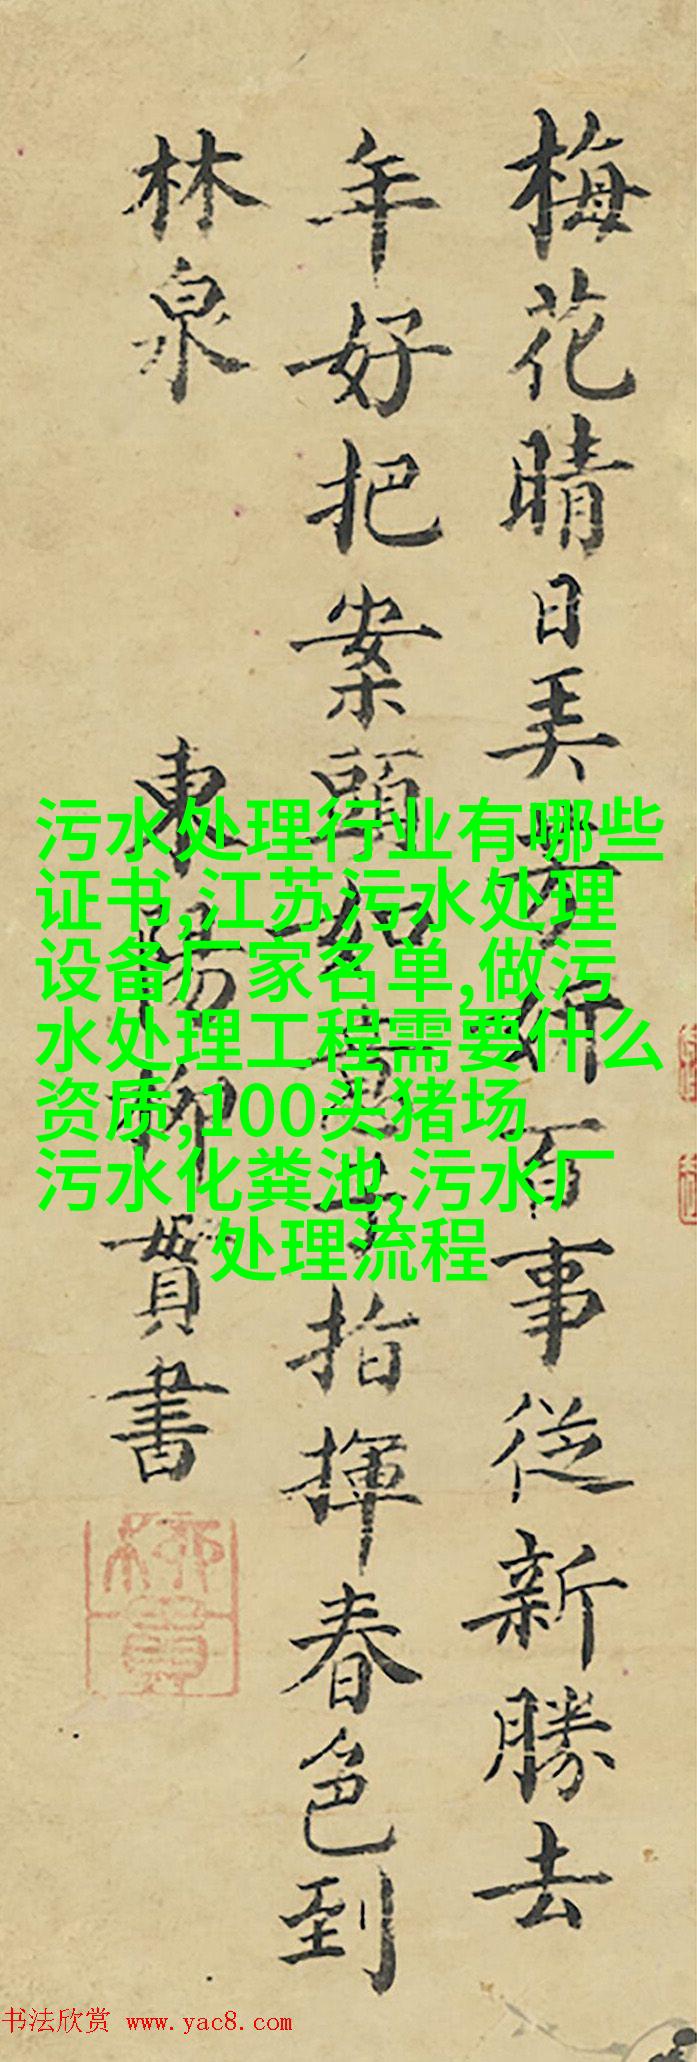 梅花晴日美芳妍百事従新勝去
年好把案頭如意手指揮春色到
林泉
東陽柳貫書
柳貫
污水处理行业有哪些
证书,江苏污水处理
设备厂家名单,做污
水处理工程需要什么
资质,100头猪场
污水化粪池,污水厂
处理流程
书法欣赏 www.yac8.com